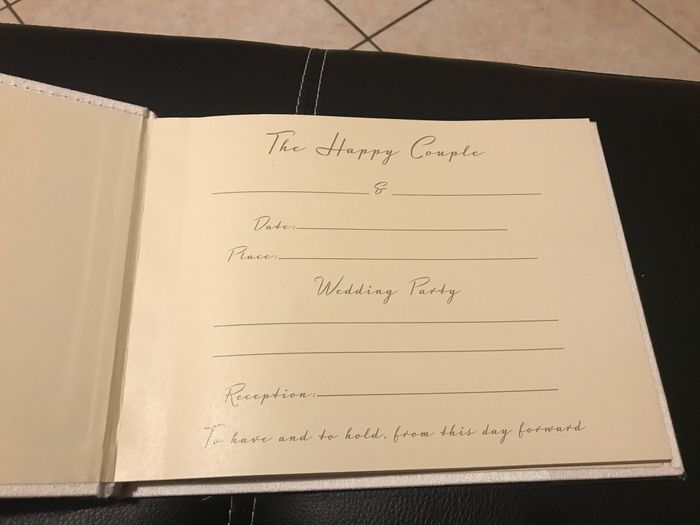 The Happy Couple
&
Date:
Place:
Wedding Party
Reception:
To have and to hold. from this day forward